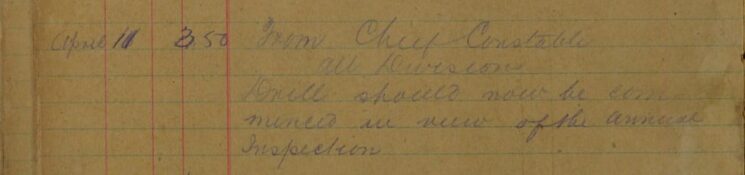 April 11 3.50 From Chief Constable
all Divisions
Drill should now be com
menced in view of the Annual
Inspection